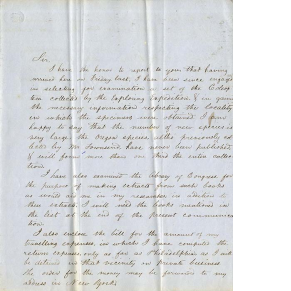 Sir
I have the honor to report to you that having
arrived here on Friday last, I have been since engaged
in selecting for examination a set of the
collected by the Exploring Expedition & in gaining
the necessary information respecting the locality
in which the specimens were obtained I am
happy to say that the number of new species is
very large the Oregon species, altho previously
by Mr Townsend have never been published
& will form more than one third the entire collec
tion.
I have also examined the library of Congress for
the purpose of making extracts from such books
as would me in my researches in addition to
these extracts I will need the books mentioned in
the list at the end of the present communica
tion.
I also enclose the bill for the amount of my
travelling expenses, in which I have computed the
return expenses only as far as Philadelphia as I will
be detained in that vicinity on private business
the order for the money may be forwarded to my
address in New York